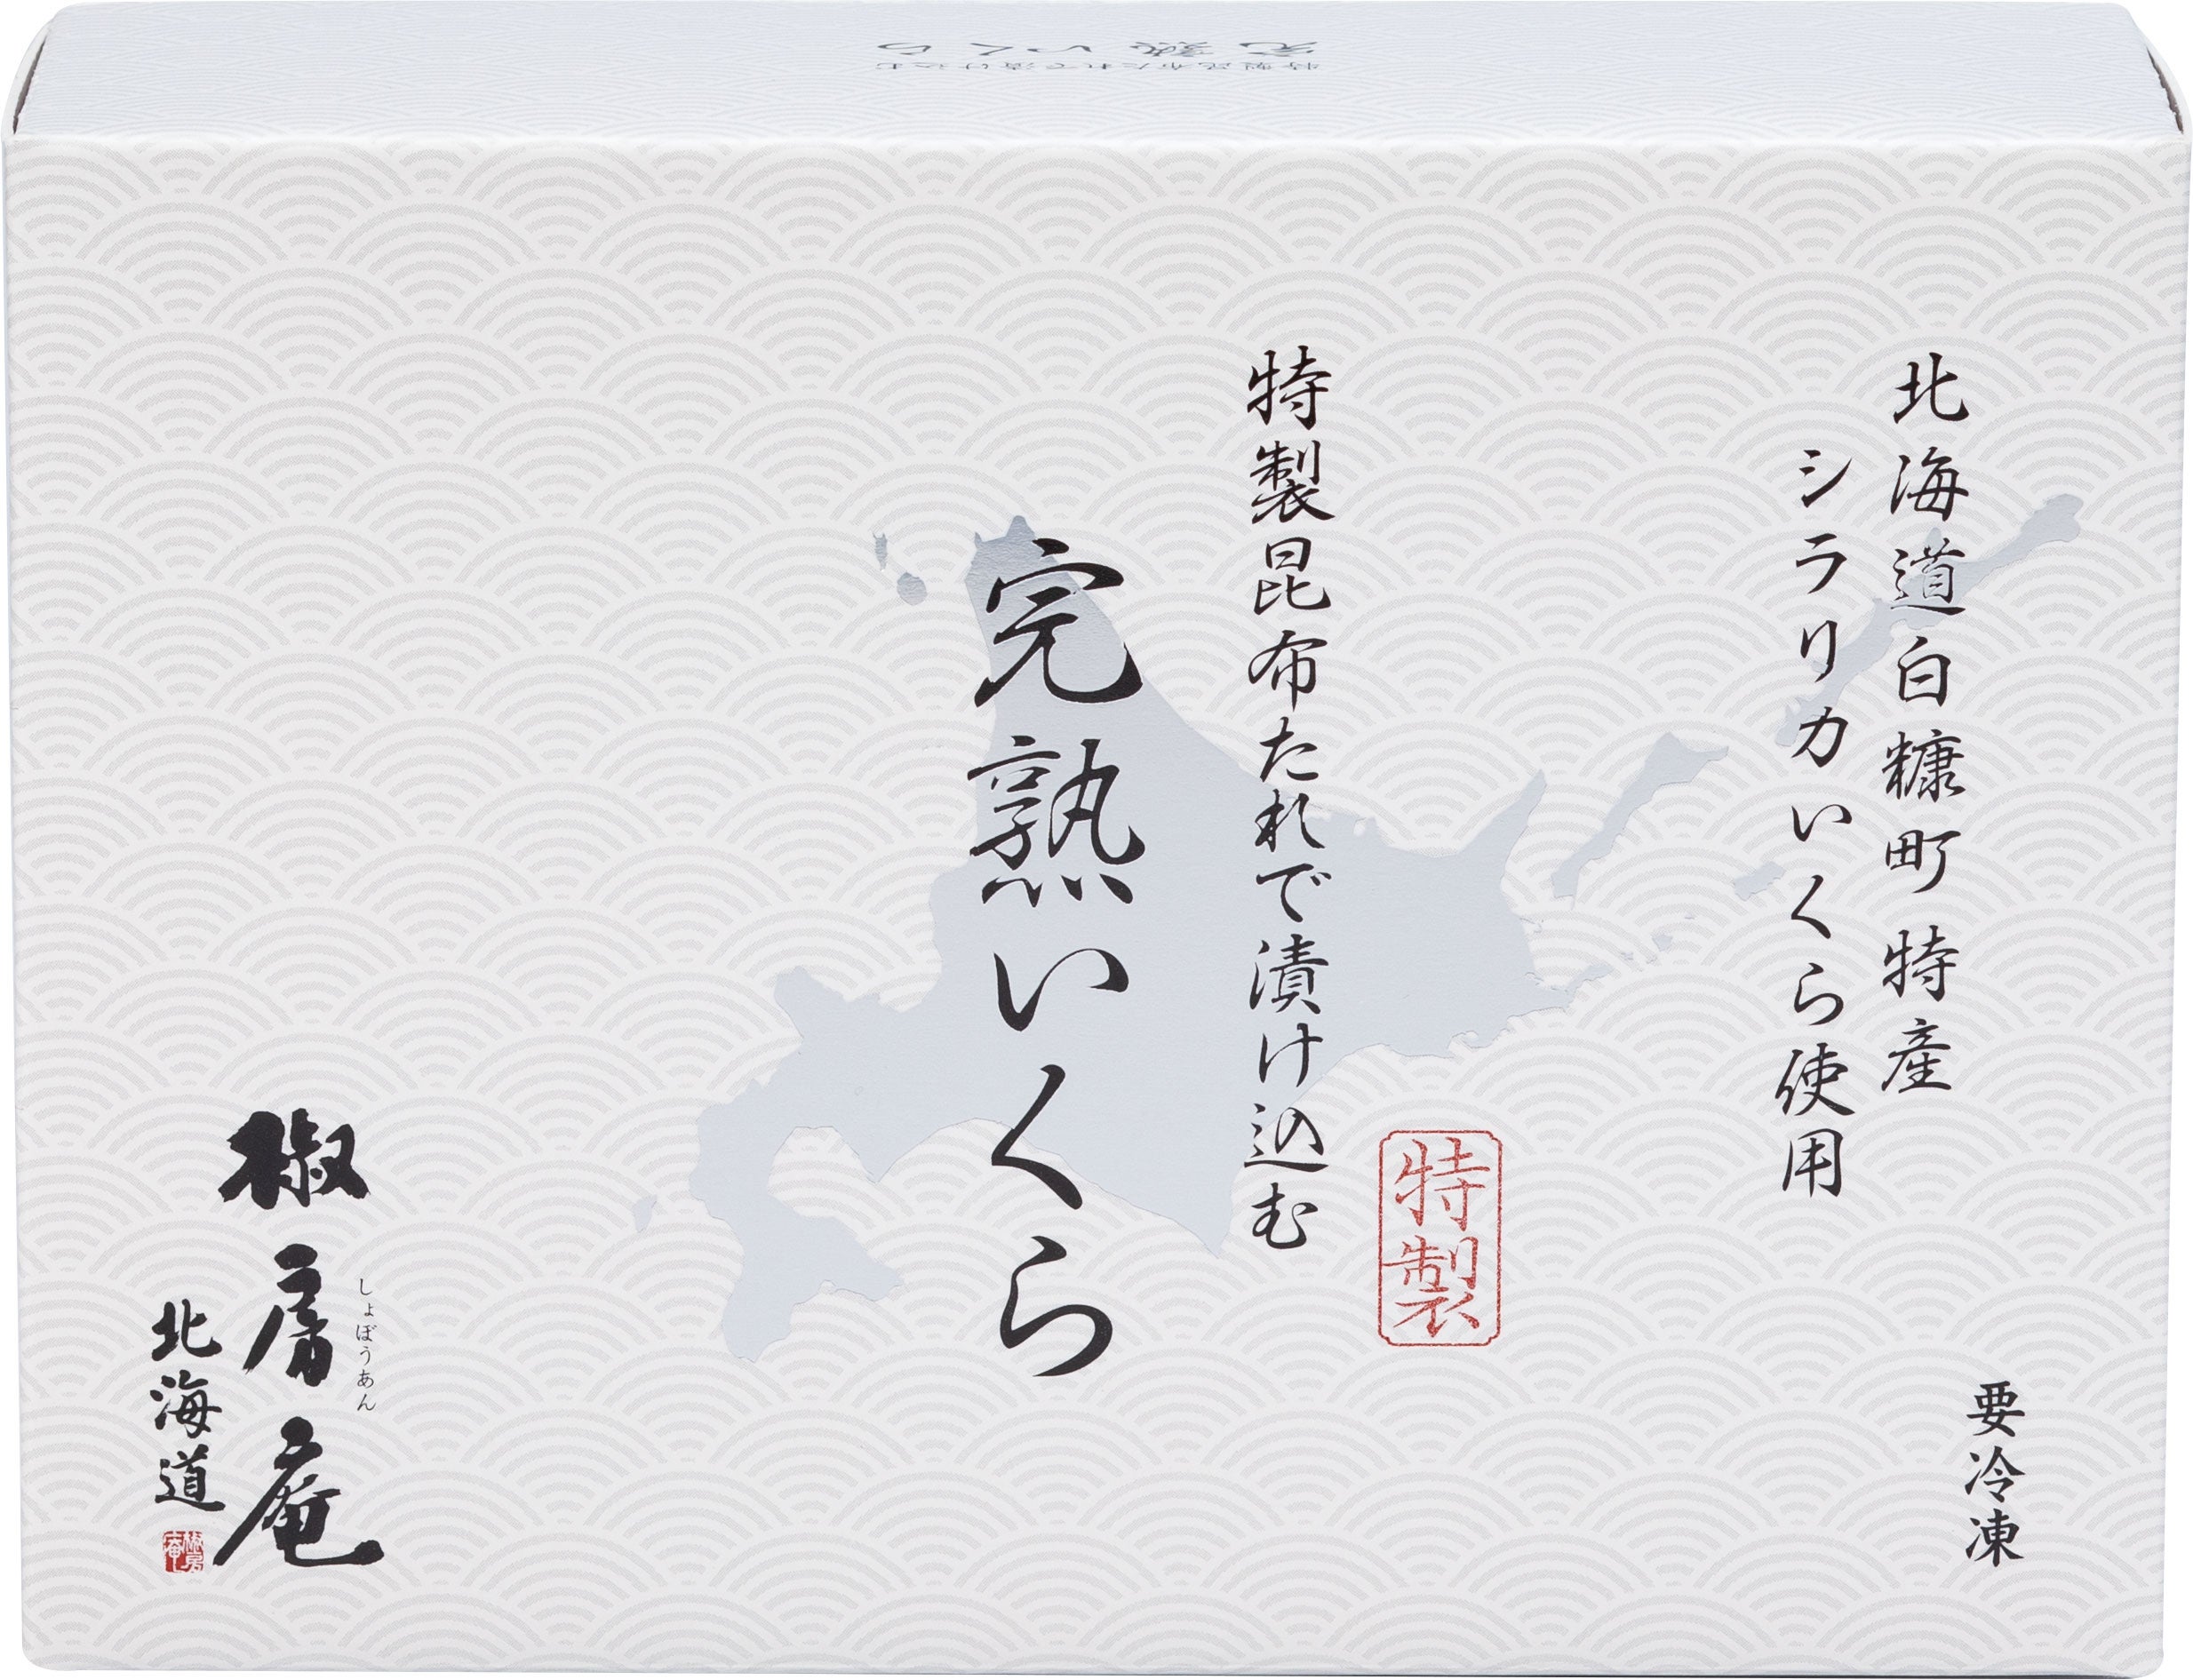 北海道白糠町 特産
シラリカいくら使用
特製昆布たれで漬け込む
完熟いくら
特製
要冷凍
しょぼうあん
椒房庵
北海道
椒房庵
完熟いくら
特製昆布たれで漬け込む